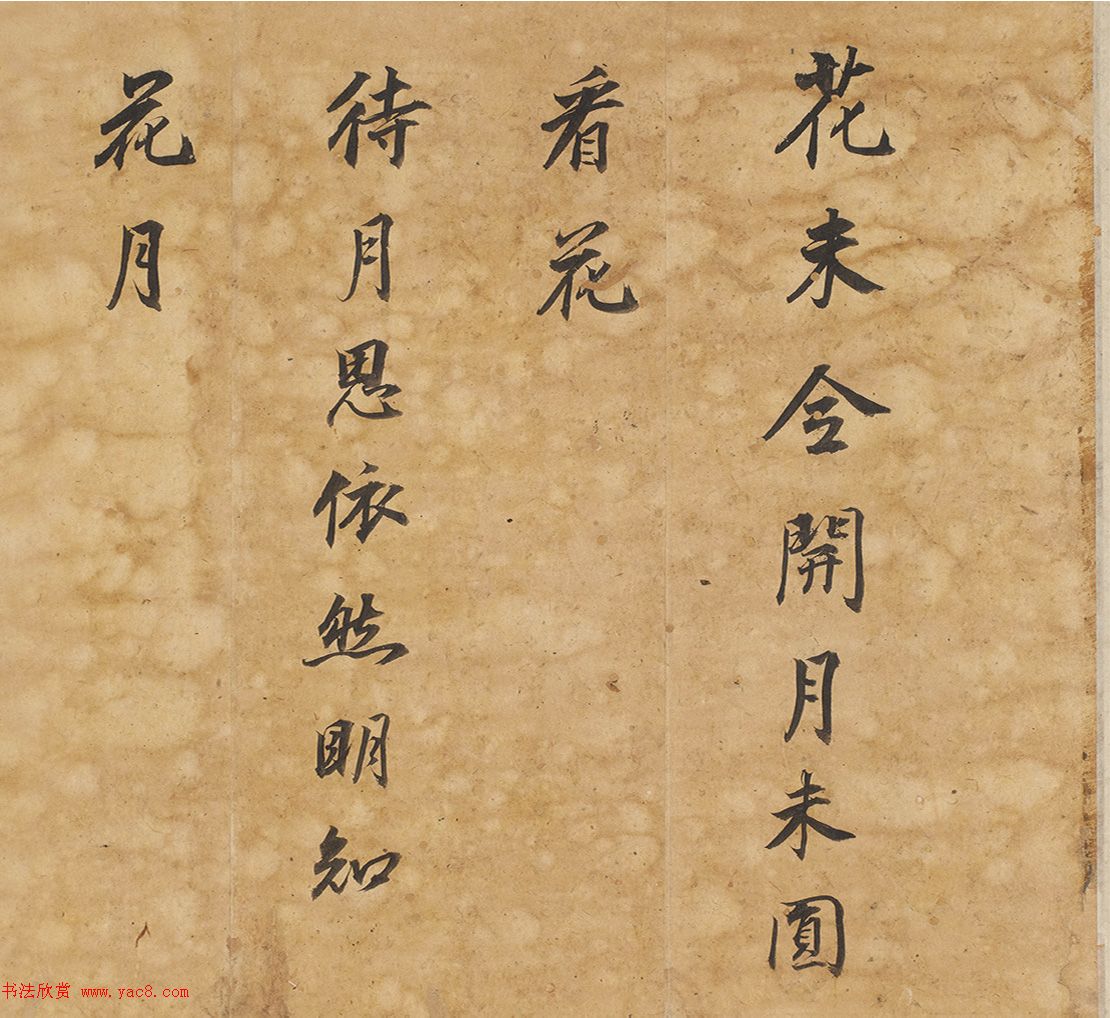 花未全開月未圓
看花
待月思依然明知
花月
书法欣赏 www.yac8.com